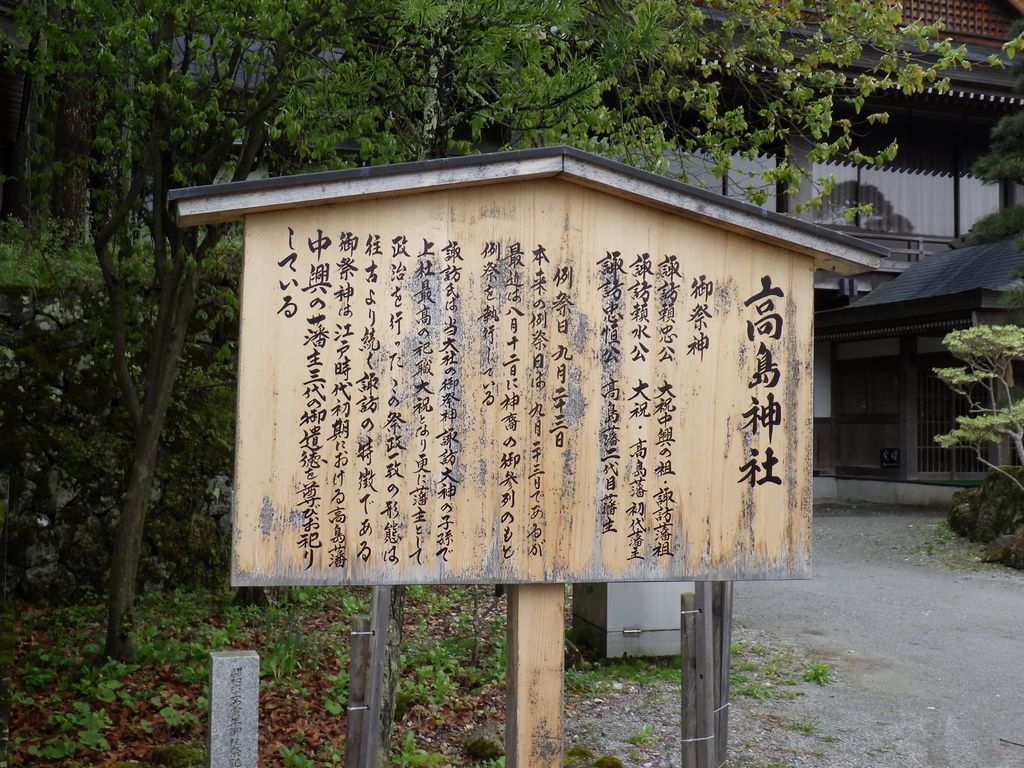 高島神社
御祭神
諏訪頼忠公 大祝中興の祖・諏訪藩祖
諏訪頼水公 大祝・高島藩初代藩主
諏訪忠恒公 高島藩二代目藩主
例祭日 九月二十三日
本来の例祭日は、九月二十三日であるが
最近は八月十二日に神裔の御参列のもと
例祭を執行している
諏訪氏は当大社の御祭神諏訪大神の子孫で
上社最高の祀職大祝となり更に藩主として
政治を行った この祭政一致の形態は
往古より続く諏訪の特徴である
御祭神は江戸時代初期における高島藩
中興の藩主三代の御遺徳を尊びお祀り
している